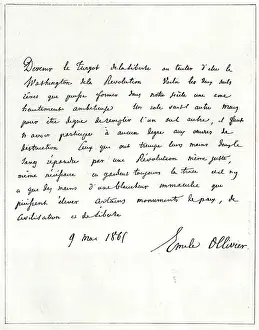 Devenir le Turgot de la liberté au milieu d'elle le
Washington de la Révolution Voilà les seuls
rêves que puisse former dans notre siècle une âme
hautement ambitieuse Un seul serait autre Mais
pour être digne de remplir l'un ou l'autre, il faut
n'avoir participé à aucun degré aux œuvres de
destruction Ceux qui ont trempé leurs mains dans le
sang répandu par une Révolution même juste,
même nécessaire en gardent toujours la trace et il n'y
a que des mains d'une blancheur immaculée qui
puissent élever certains monuments de paix, de
civilisation et de liberté
9 mai 186
Emile Ollivier